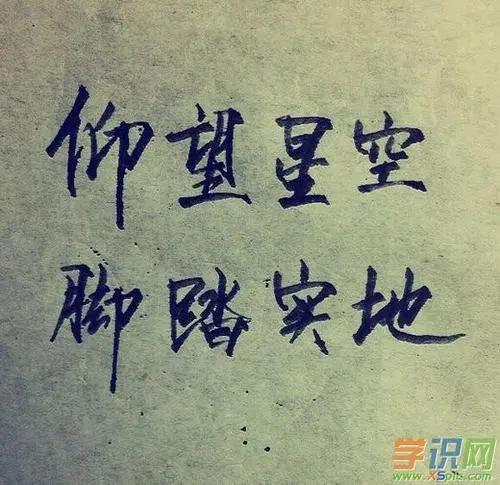 仰望星空
脚踏实地
学识网
www.xspic.com